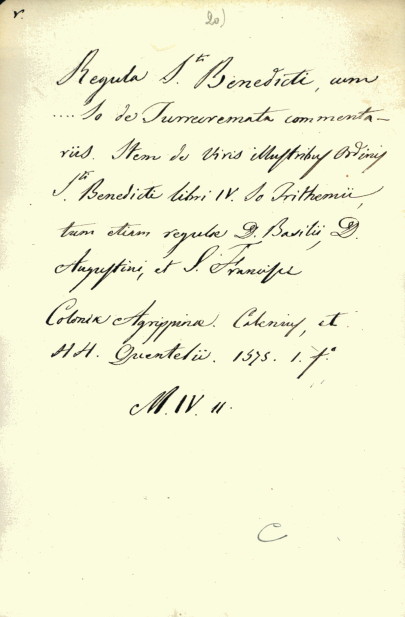 r.
20)
Regula S.ti Benedicti, cum
.... Jo de Turrecremata commenta-
riis. Item de Viris illustribus Ordinis
S.ti Benedicti libri IV. Jo Trithemii,
tum etiam regulae D. Basilii, D.
Augustini, et S. Francisci
Coloniae Agrippinae. Calenius, et
HH. Quentelii. 1575. 1. fo
M. IV. 11.
C